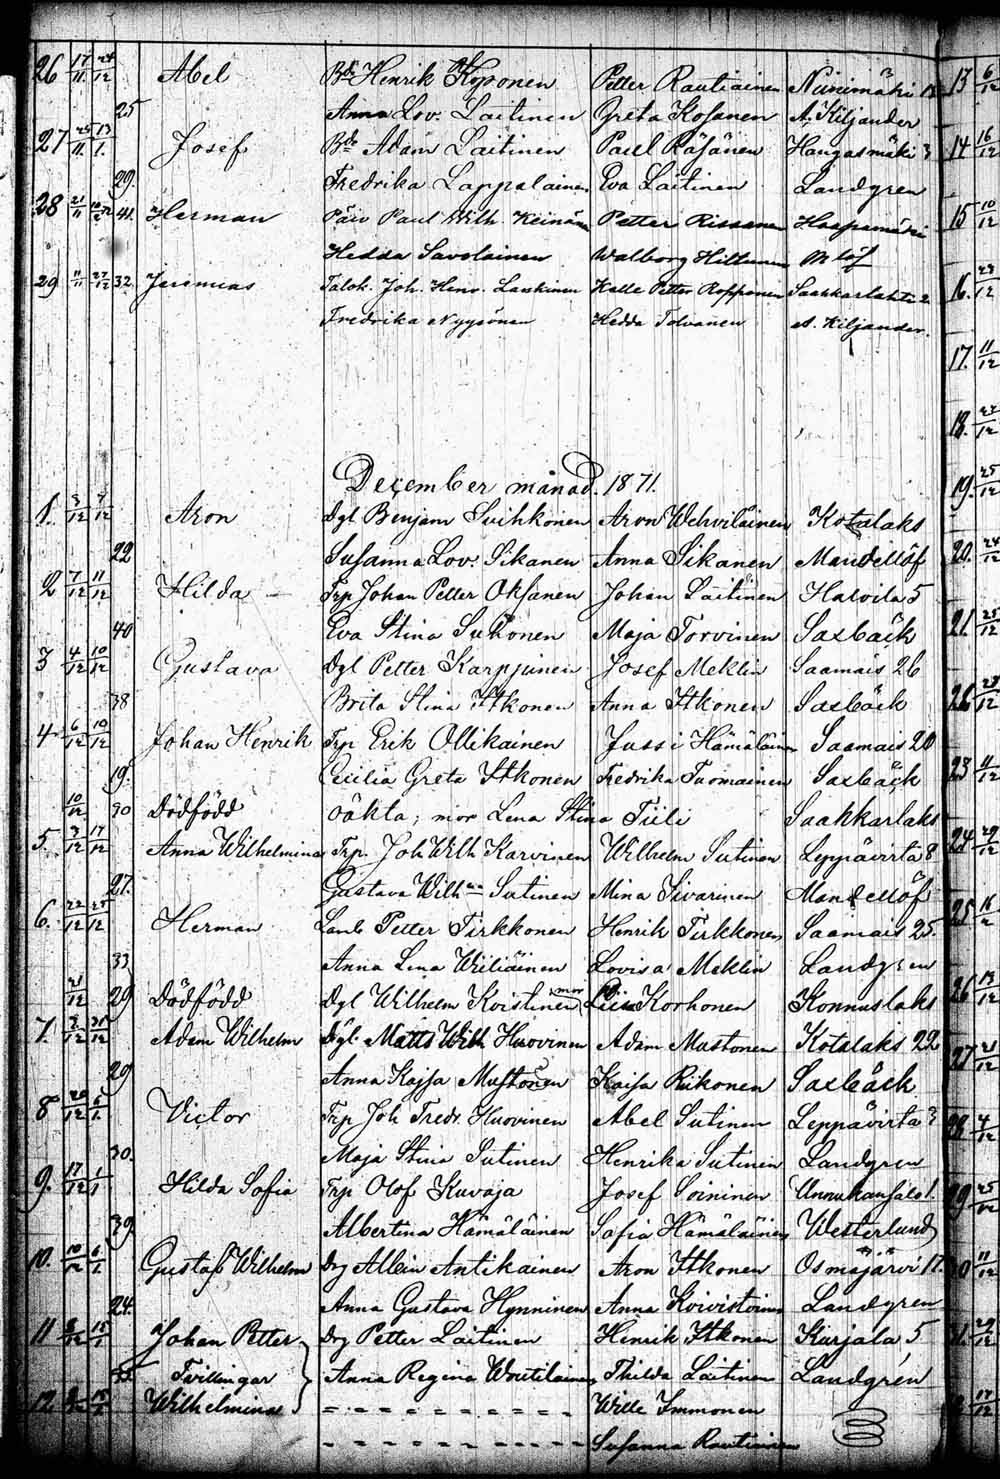 26 17/11 24/12 Abel Bde Henrik Koponen Petter Rautiainen Niinimäki 13
25 Anna Lov. Laitinen Greta Kosanen A. Kiljander
27 25/11 13/1. Josef Bde Adam Laitinen Paul Räsänen Hangasmäki 3
29. Fredrika Lappalainen Eva Laitinen Landgren
28 21/11 41. Herman Päiv Paul Wilh Keinänen Petter Rissanen Haapamäki
Hedda Savolainen Walborg Hiltunen M löf
29 11/11 27/12 32. Jeremias Talok. Joh. Henr. Laukinen Kalle Petter Ropponen Saahkarlahti 2
Fredrika Nyyssönen Hedda Tolvanen A. Kiljander.
December månad. 1871.
1. 3/12 7/12 Aron Dgl Benjam Suihkonen Aron Wehviläinen Kotalaks
22 Susanna Lov. Sikanen Anna Sikanen Mandellöf
2 7/12 11/12 Hilda Trp Johan Petter Oksanen Johan Laitinen 5
40 Eva Stina Suhonen Maja Torvinen Saxbäck
3 4/12 10/12 Gustava Dgl Petter Karppinen Josef Meklin Saamais 26
38 Brita Stina Itkonen Anna Itkonen Saxbäck
4 6/12 10/12 Johan Henrik Trp Erik Ollikainen Jussi Hämäläinen Saamais 20
19. Cecilia Greta Itkonen Fredrika Tuomainen Saxbäck
10/12 30 Dödfödd oäkta; mor Lena Stina Tiili Saahkarlaks
5. 3/12 17/12 Anna Wilhelmina Trp. Joh Wilh Karvinen Wilhelm Sutinen Leppävirta 8
27. Gustava Wilhna Sutinen Mina Sivarinen Mandellöf
6. 22/12 25/12 Herman Lamb Petter Tirkkonen Henrik Tirkkonen Saamais 25.
33 Anna Lena Wiliäinen Lovisa Meklin Landgren
21/12 29 Dödfödd Dgl Wilhelm Koistinen, mor Korhonen Konnuslaks
7. 2/12 31/12 Adam Wilhelm Dgl. Matts Wilh Huovinen Adam Mustonen Kotalaks 22
29 Anna Kajsa Mustonen Kajsa Riikonen Saxbäck
8 26/12 6/1 Victor Trp Joh Fredr. Huovinen Abel Sutinen Leppävirta 3
30. Maja Stina Sutinen Henrika Sutinen Landgren
9. 17/12 1/1 Hilda Sofia Trp Olof Kuvaja Josef Soininen Unnukansalo 1.
39 Albertina Hämäläinen Sofia Hämäläinen Westerlund
10. 10/12 6/1 Gustaf Wilhelm Drg Albin Antikainen Aron Itkonen Osmajärvi 17.
24. Anna Gustava Hynninen Anna Koivistoinen Landgren
11 8/12 15/1 Johan Petter Drg Petter Laitinen Henrik Itkonen Karjala 5
Tvillingar Anna Regina Woutilainen Thilda Laitinen Landgrén
12. 15/1 Wilhelmina Wille Immonen
Susanna Rautiainen
13 6/12
14 16/12
15 10/12
16. 23/12
17. 11/12
18. 27/12
19. 25/12
20. 24/12
21. 25/12
23 11/12
24 29/12
25 16
26 13/12
27 21/12
4/12
29 25/12
11/12
29/12
17/12